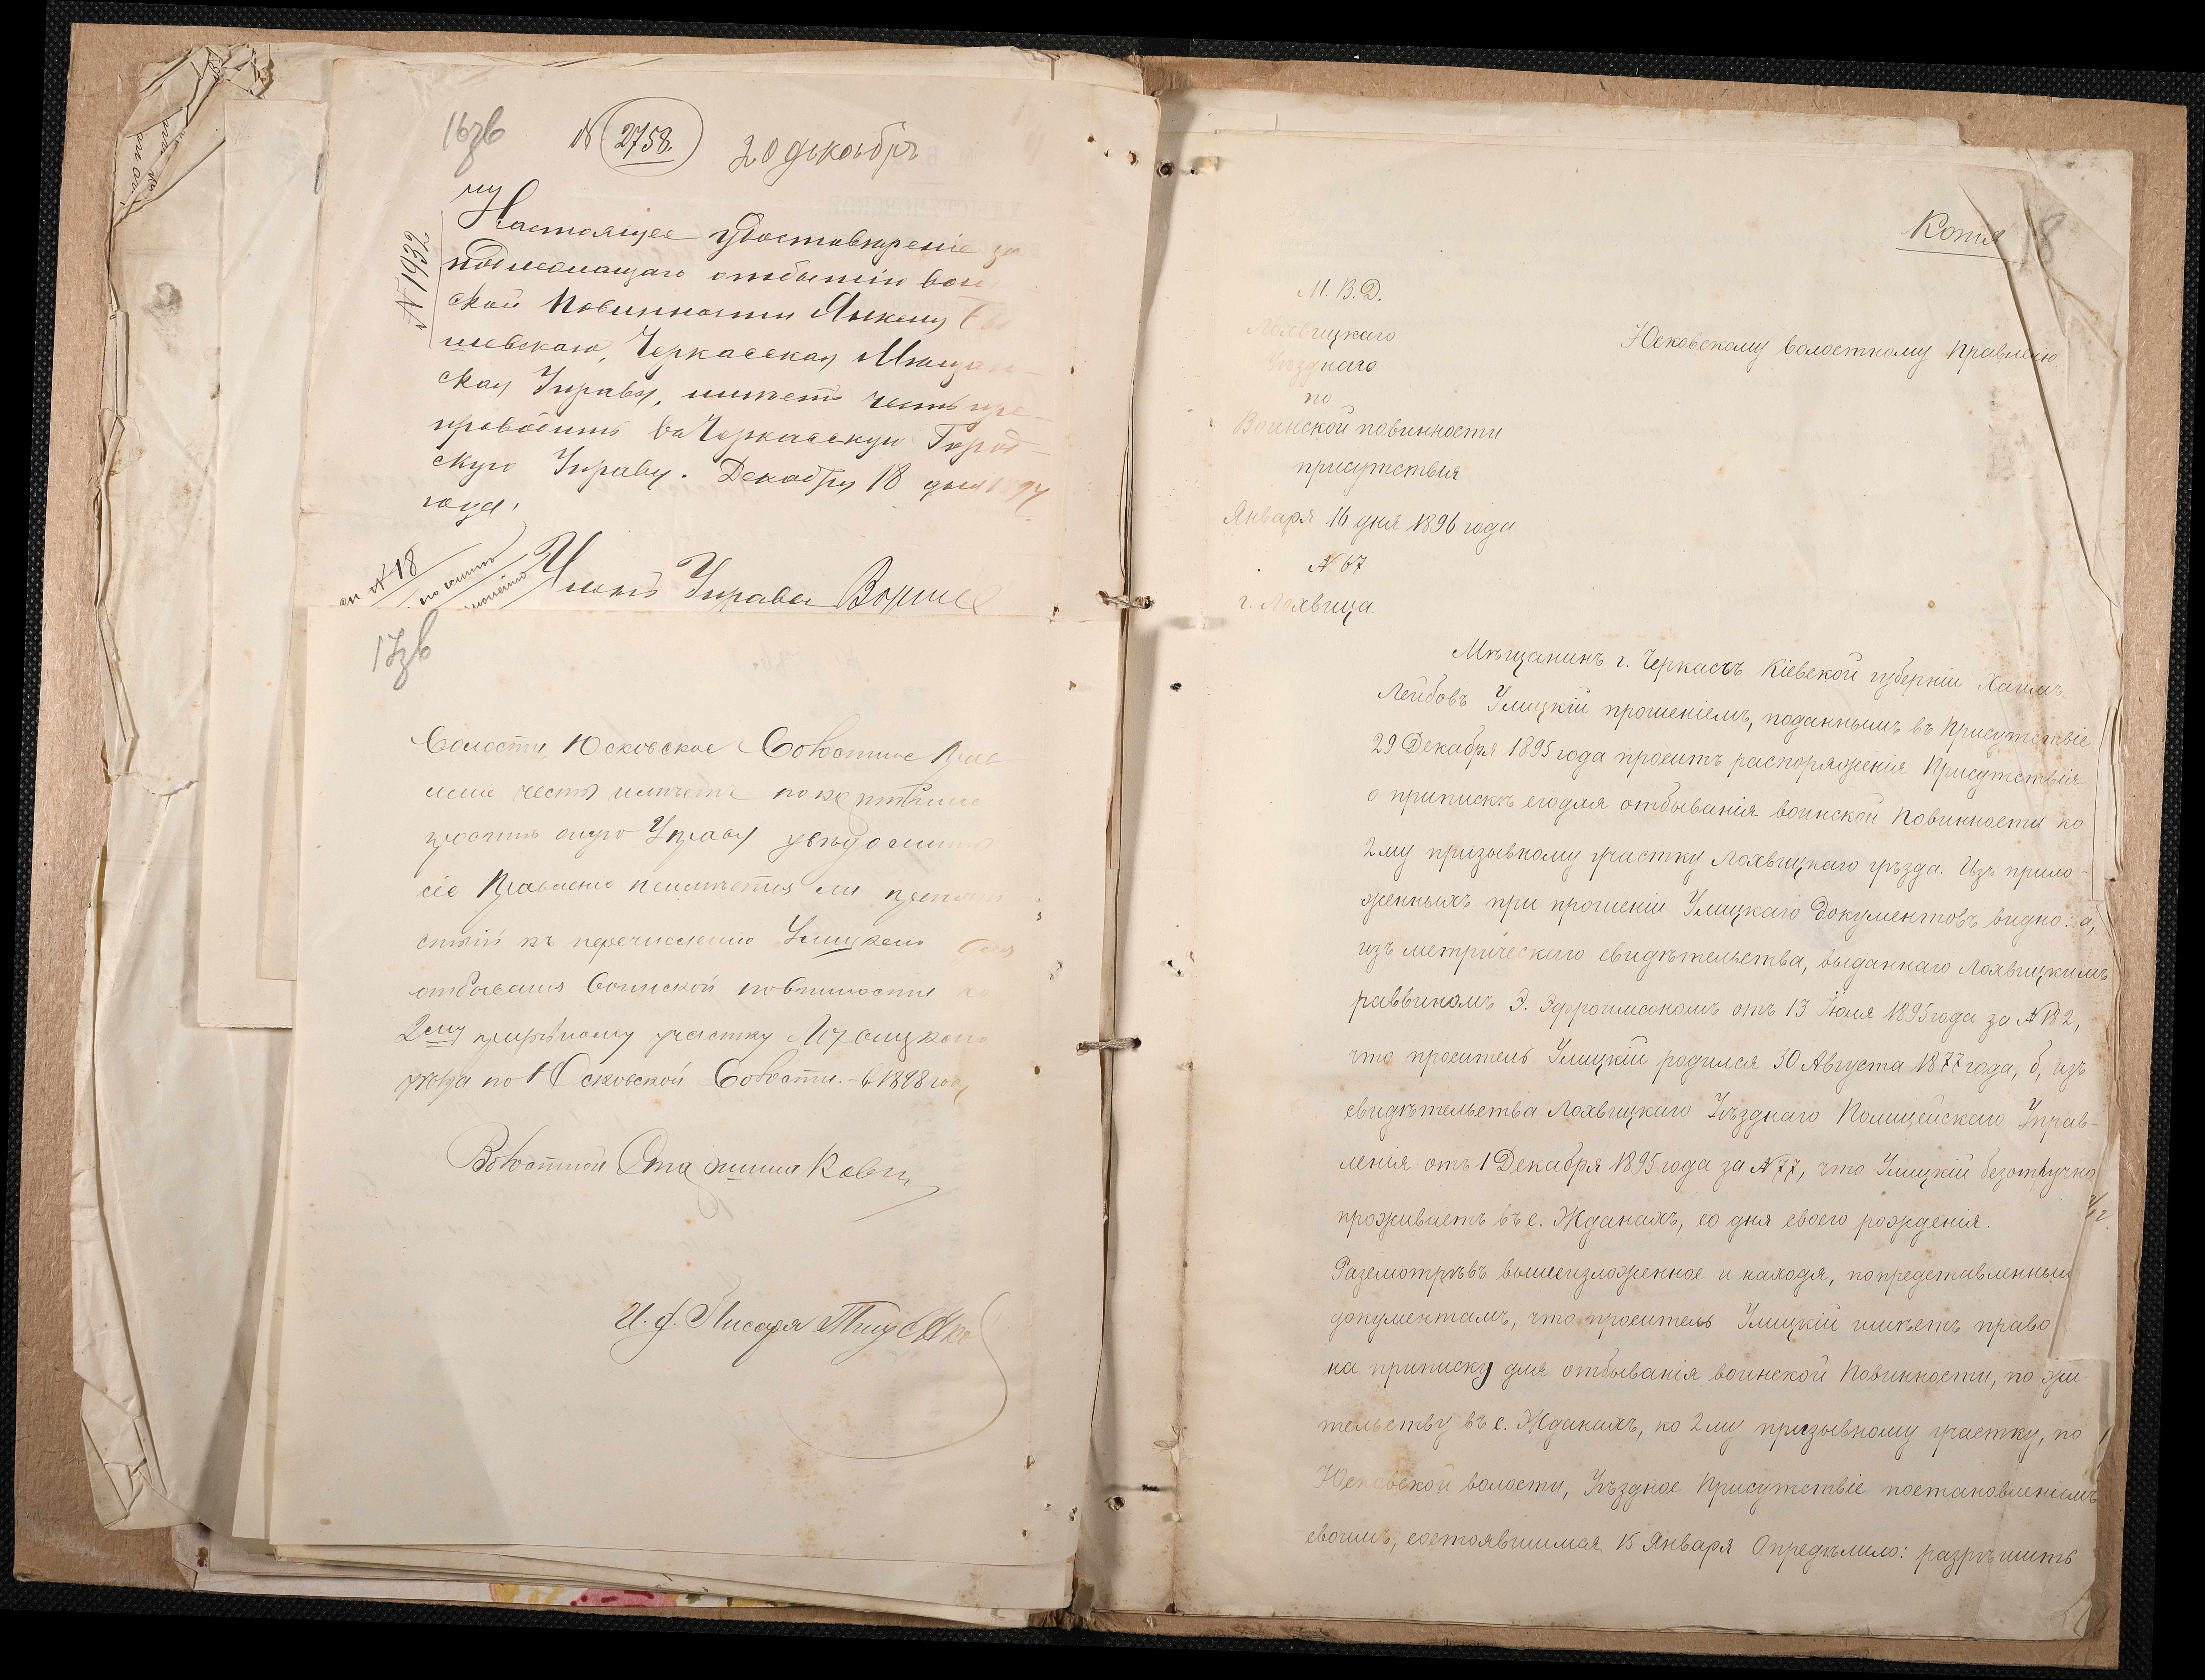 16зв
№ 2758
20 декабрь
№ 1932
Настоящее удостовѣреніе за
подлежащаго отбытію воин
ской повинности Янкелу
шевскаго, Черкасская Мѣщан-
ская Управа, имѣетъ честь пре-
проводить въ Черкасскую Город-
скую Управу. Декабря 18 дня 1897
года.
№ 18
Членъ Управы
17зв
Волости, Юсковское Волостное Прав
леніе честь имѣетъ покорнѣйше
просить оную Управу увѣдомить
сіе Правленіе неимѣется ли препят
ствій къ перечисленію Улицкаго для
отбыванія воинской повинности ко
2му призывному участку Лохвицкаго
уѣзда по Юсковской волости. - в 1898 год
Волостной Старшина
И. д. Писаря
Копія
18
М. В. Д.
Лохвицкаго
Уѣзднаго
по
Воинской повинности
присутствія
Января 16 дня 1896 года
№ 67
г. Лохвица.
Юсковскому волостному Правленію
Мѣщанинъ г. Черкассъ Кіевской губерніи Хаимъ
Лейбовъ Улицкій прошеніемъ, поданнымъ въ Присутствіе
29 Декабря 1895 года проситъ распоряженія Присутствія
о припискѣ его для отбыванія воинской Повинности ко
2му призывному участку Лохвицкаго уѣзда. Изъ прило-
женныхъ при прошеніи Улицкаго документовъ видно: а,
изъ метрическаго свидѣтельства, выданнаго Лохвицкимъ
раввиномъ Э. Эфроимсономъ отъ 13 Іюля 1895 года за № 182,
что проситель Улицкій родился 30 Августа 1877 года, б, изъ
свидѣтельства Лохвицкаго Уѣзднаго Полицейскаго Управ-
ленія отъ 1 Декабря 1895 года за № 77, что Улицкій безотлучно
проживаетъ въ с. Жданахъ, со дня своего рожденія.
Разсмотрѣвъ вышеизложенное и находя, по представленным
документамъ, что проситель Улицкій имѣетъ право
на приписку для отбыванія воинской Повинности, по жи-
тельству въ с. Жданахъ, ко 2му призывному участку, по
Юсковской волости, Уѣздное Присутствіе постановленіемъ
своимъ, состоявшимся 15 Января Опредѣлило: разрѣшить